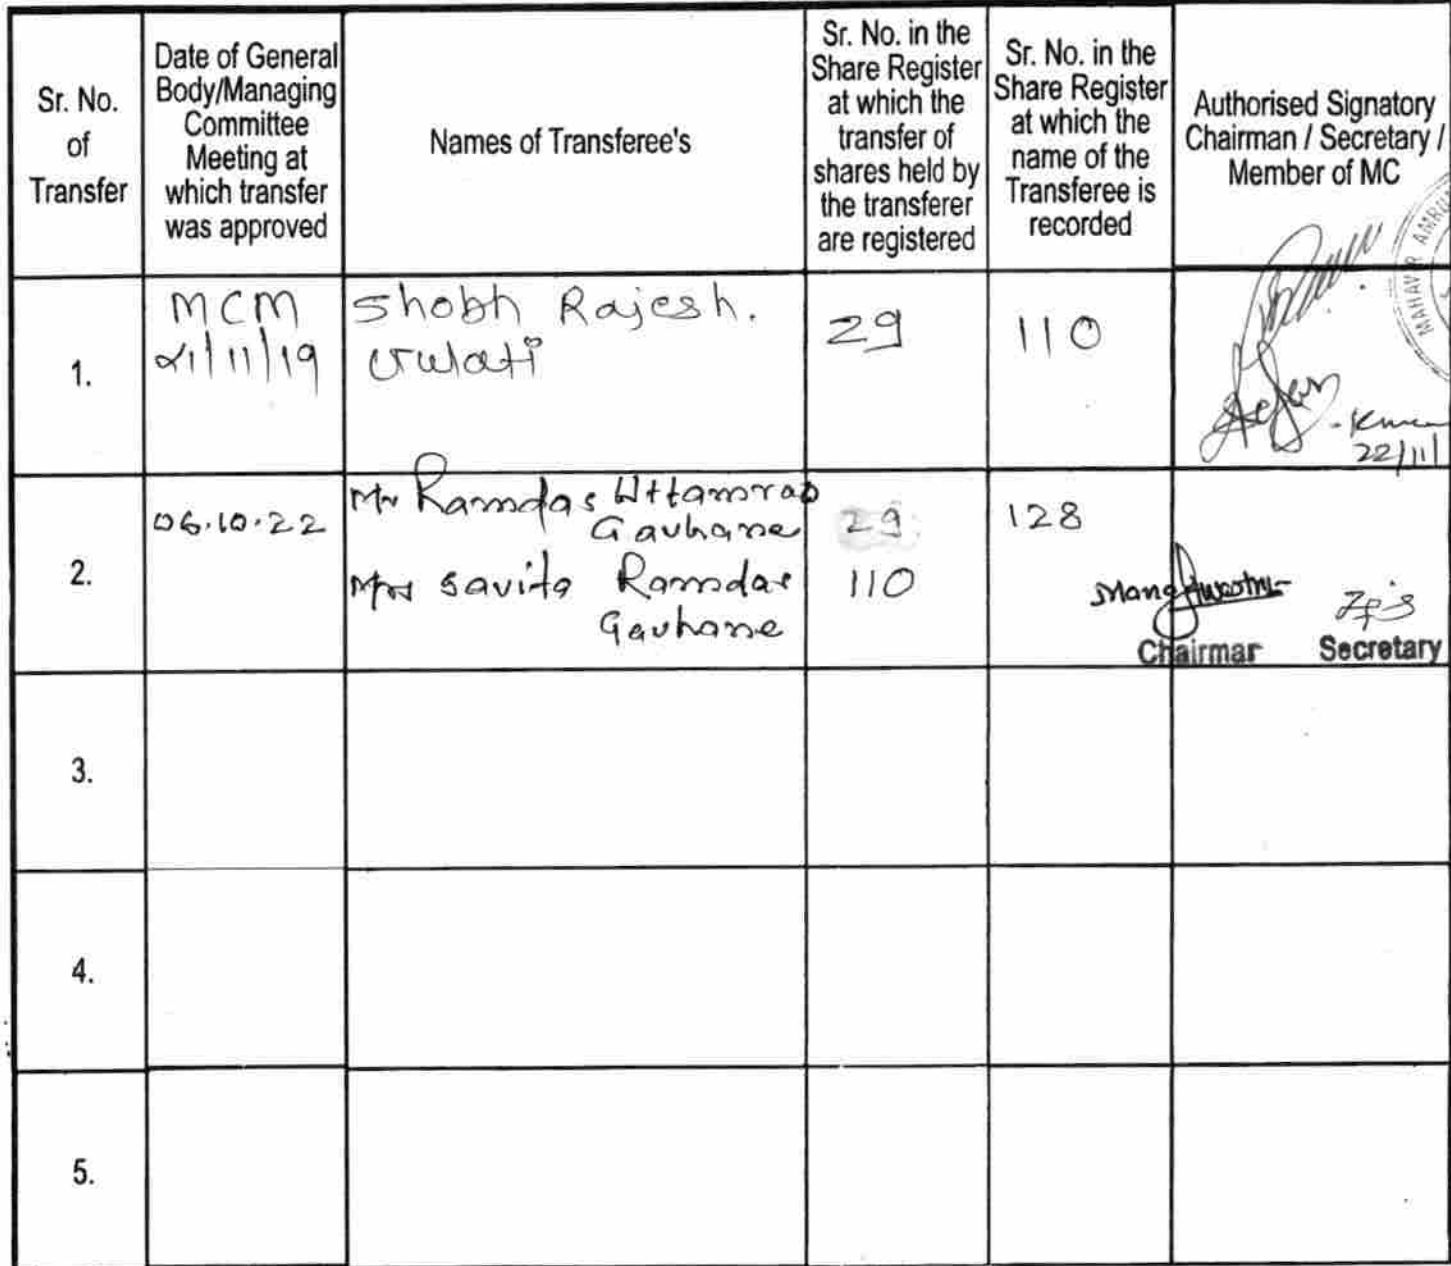 Sr. No.
of
Transfer
Date of General
Body/Managing
Committee
Meeting at
which transfer
was approved
Names of Transferee's
Sr. No. in the
Share Register
at which the
transfer of
shares held by
the transferer
are registered
Sr. No. in the
Share Register
at which the
name of the
Transferee is
recorded
Authorised Signatory
Chairman / Secretary /
Member of MC
MAHAVIR
1.
MCM
21/11/19
Shobh Rajesh.
Gulati
29
110
22/11/
2.
06.10.22
Mr Ramdas Uttamrao
Gavhane
Mrs Savita Ramdas
Gavhane
29
110
128
Chairmar
Secretary
3.
4.
5.